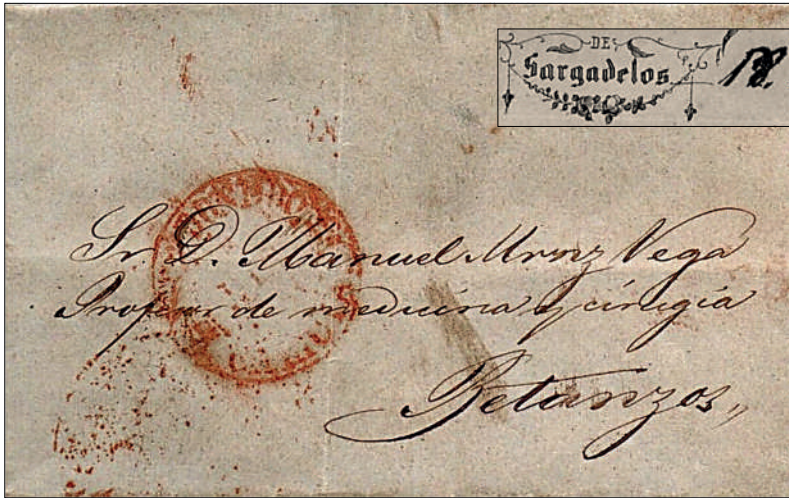 DE
Sargadelos
Sr. D. Manuel Mrnz Vega
Profesor de medicina y cirugia
Betanzos,,